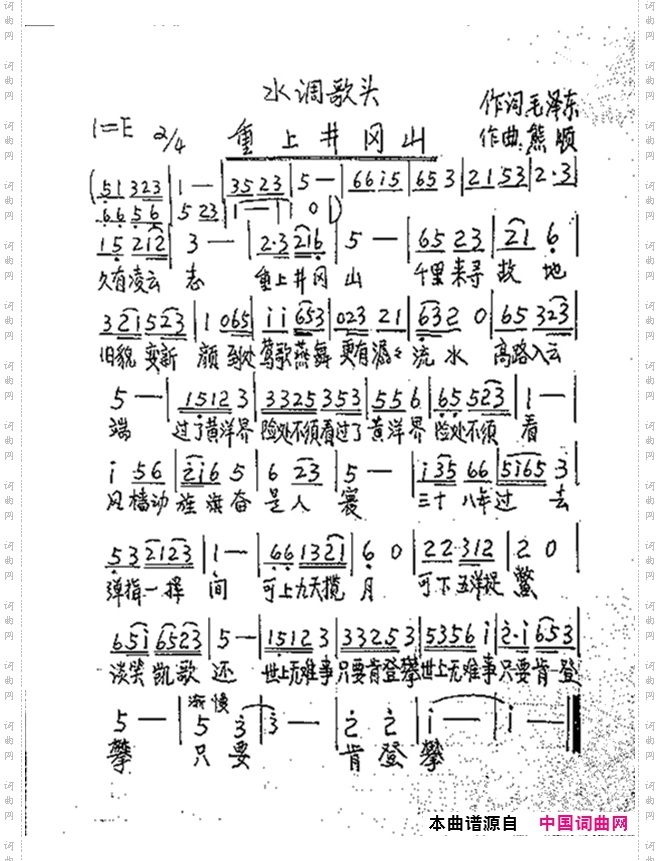 水调歌头
作词毛泽东
1=E 2/4 重上井冈山
作曲:熊顺
(51 323 | 1 — | 35 23 | 5 — | 66 i5 | 65 3 | 21 53 | 2·3 |
66 56 | 5 23 | 1 — | 1 0 )
15 212 | 3 — | 2·3 216 | 5 — | 65 23 | 21 6 |
久有凌云 志 重上井冈 山 千里来寻 故 地
321 523 | 1 065 | ii 653 | 023 21 | 632 0 | 65 323 |
旧貌 变新 颜 到处 莺歌燕舞 更有潺々 流水 高路入云
5 — | 1512 3 | 3325 353 | 55 6 | 65 523 | 1 — |
端 过了黄洋界 险处不须看过了 黄洋界 险处不须 看
i 56 | 2i6 5 | 6 23 | 5 — | i35 66 | 5i65 3 |
风樯动 旌旗奋 是人 寰 三十 八年过 去
53 2123 | 1 — | 66 1321 | 6 0 | 22 312 | 2 0 |
弹指一挥 间 可上九天揽 月 可下五洋捉 鳖
65i 6523 | 5 — | 1512 3 | 3325 3 | 5356 i | 2·i 653 |
谈笑 凯歌 还 世上无难事 只要肯登攀 世上无难事 只要肯一登
渐慢
5 — | 5 3 | 3 — | 2 2 | i — | i — ‖
攀 只 要 肯 登 攀
本曲谱源自 中国词曲网
词曲网